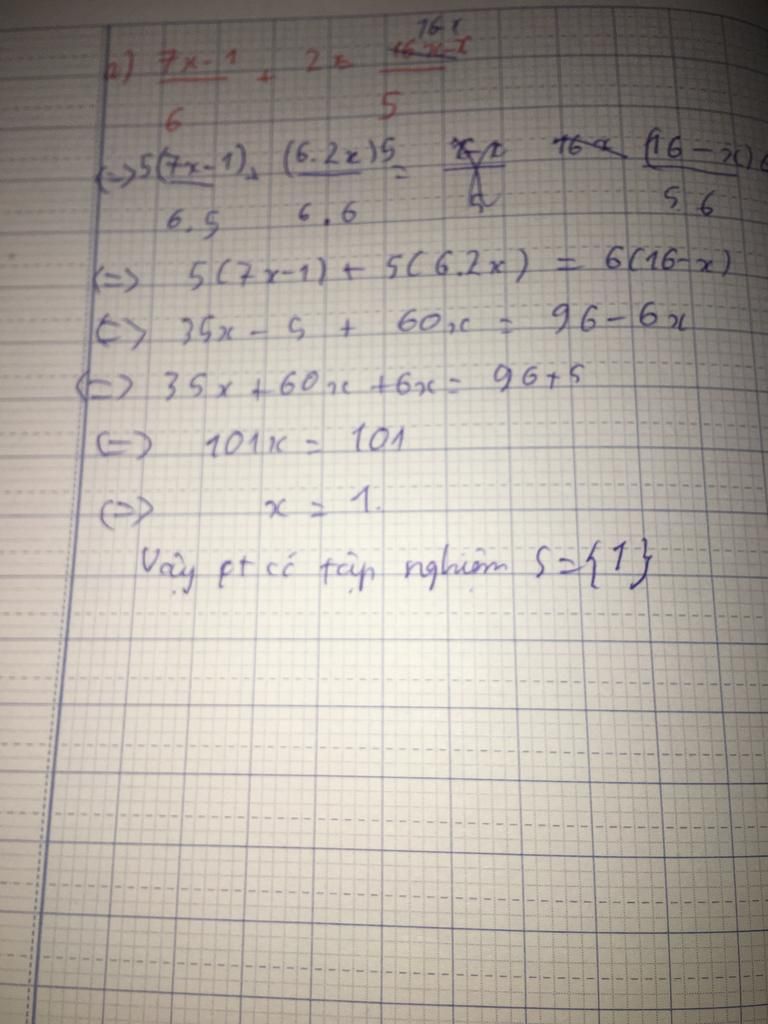 a) 7x-1/6 + 2x = 16-x/5
(=> 5(7x-1)/6.5 + (6.2x)5/6.6 = (16-x)6/5.6
(=> 5(7x-1) + 5(6.2x) = 6(16-x)
(=> 35x - 5 + 60x = 96 - 6x
(=> 35x + 60x + 6x = 96 + 5
(=> 101x = 101
(=> x = 1.
Vậy pt có tập nghiệm S = {1}